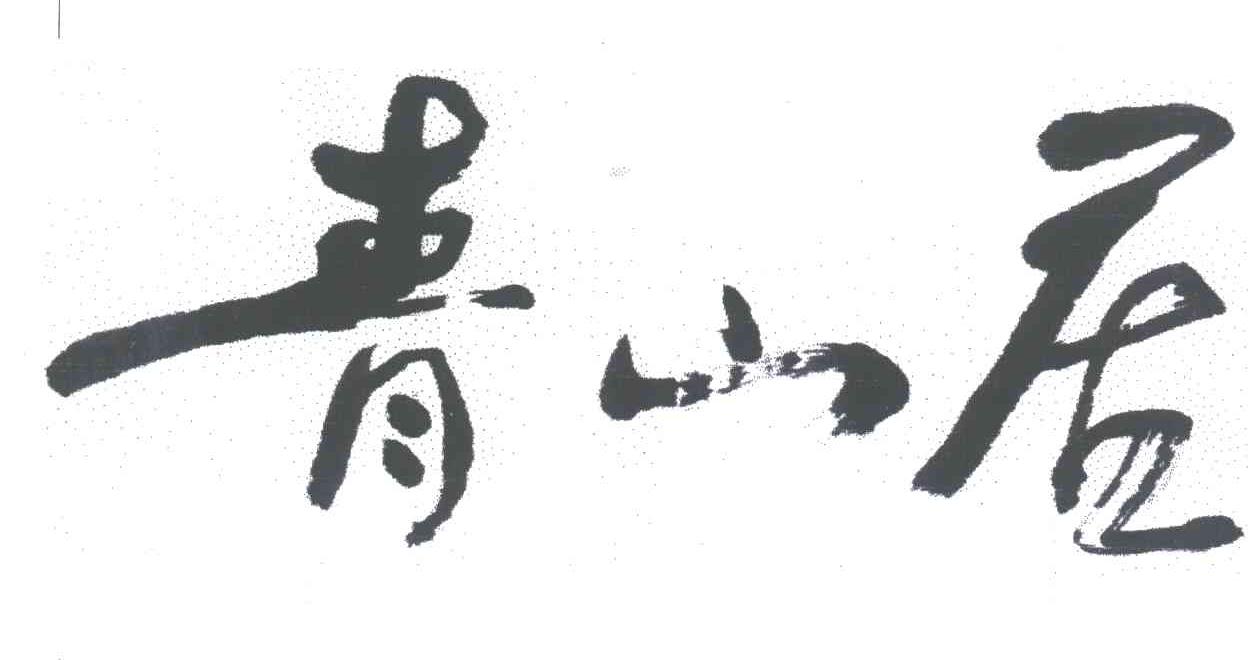 青山居